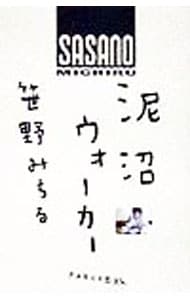 SASANO
MICHIRU
泥沼
ウォーカー
笹野みちる